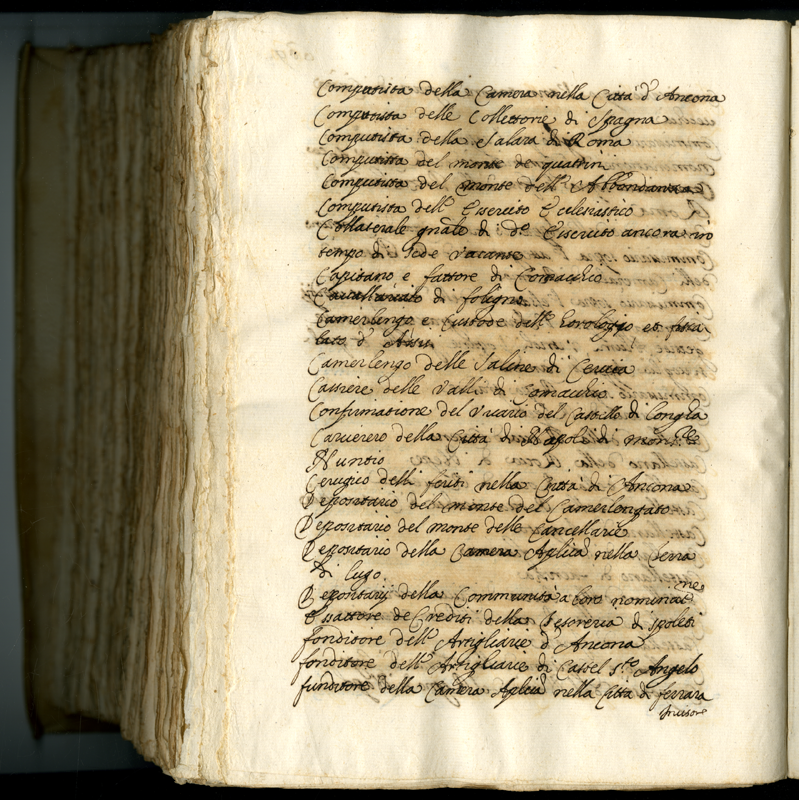 Computista della Camera nella Città d'Ancona
Computista delle Collettorie di Spagna
Computista della Salara di Roma
Computista del monte de quatrini
Computista del monte dell'Abbondanza
Computista dell'Esercito Ecclesiastico
Collaterale gnãle di dº Essercito ancora in
tempo di Sede Vacante
Capitano e fattore di Comacchio
di foligno
Camerlengo e Custode dell' horologgio et
d'Assisi
Camerlengo delle Saline di Cervia
Cassiere delle Valli di Comacchio
Confirmatione del Vicario del Castello di
della Città di Napoli di monsre
Nuntio
Cerugico delli feriti nella Città di Ancona
Depositario del monte del Camerlengato
Depositario del monte delle Cancellarie
Depositario della Camera Aplica nella Terra
di lugo
Depositarij della Communità a loro nominatne
Essattore de Crediti della Tesoreria di Spoleti
fonditore dell'Artigliarie d'Ancona
fonditore dell'Artigliarie di Castel Sto Angelo
funditore della Camera Aplica nella Città di ferrara